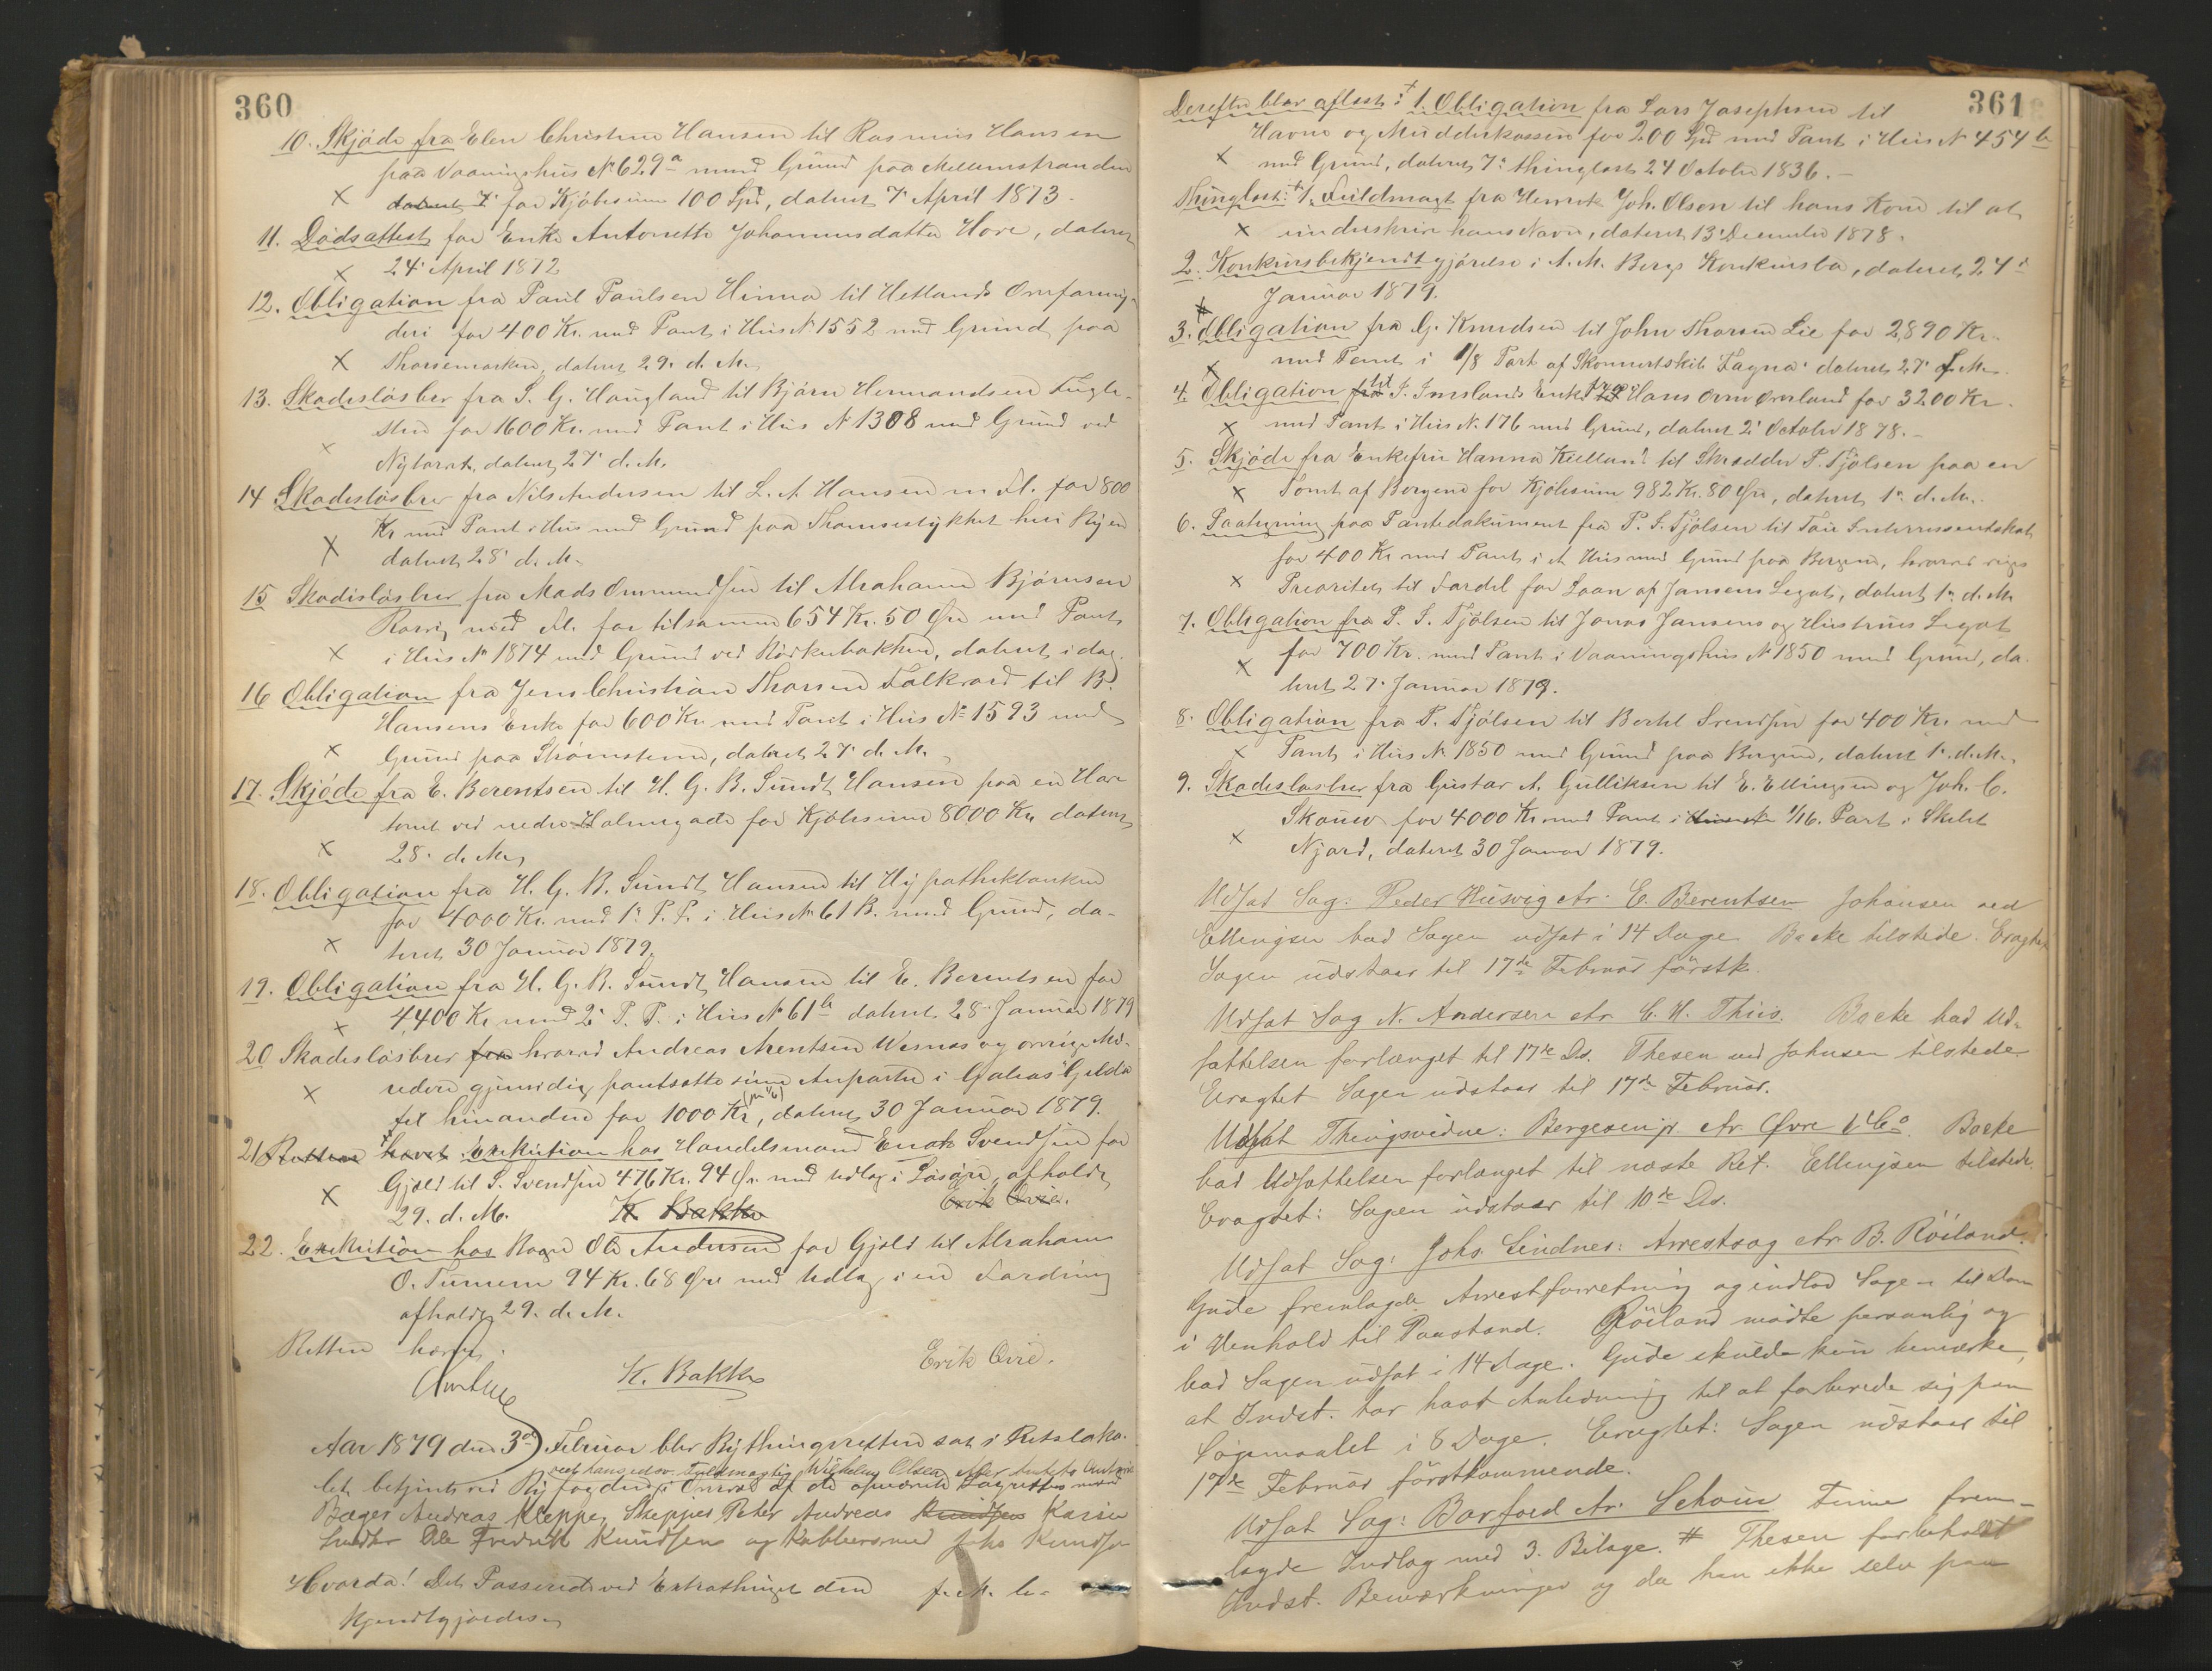 360
10. Skjöde fra Elen Christine Hansen til Rasmus Hansen
paa Vaaningshus No 629a med Grund paa Mellemstranden
x for Kjöbesum 100 Spd, dateret 7. April 1873.
11. Dödsattest for Enke Antonette Johannesdatter Hove, dateret
x 24. April 1872
12. Obligation fra Paul Paulsen Hinna til Hetlands Overformyn-
deri for 400 Kr. med Pant i Hus No 1552 med Grund paa
x dateret 29. d. M.
13. Skadeslösbrev fra S. G. Haugland til Björn Hermandsen Fugle-
sten for 1600 Kr. med Pant i Hus No 1308 med Grund ved
x Nytorvet, dateret 27. d. M.
14 Skadeslösbrev fra Nils Andersen til L. A. Hansen m. Fl. for 800
Kr. med Pant i Hus med Grund paa
x dateret 28. d. M.
15 Skadeslösbrev fra Mads Ommundsen til Abraham Björnsen
med Fl. for tilsammen 654 Kr. 50 Öre med Pant
x i Hus No 1874 med Grund ved dateret i dag.
16 Obligation fra Jens Christian Thorsen Falkvard til B.
Hansens Enke for 600 Kr. med Pant i Hus No 1593 med
x Grund paa Strömstenen, dateret 27. d. M.
17. Skjöde fra E. Berentsen til H. G. B. Sundt Hansen paa en Have
tomt ved nedre Holmegade for Kjöbesum 8000 Kr. dateret
x 28. d. M.
18. Obligation fra H. G. B. Sundt Hansen til Hypothekbanken
for 4000 Kr. med 1. P. P. i Hus No 61 B. med Grund, da-
x teret 30 Januar 1879.
19. Obligation fra H. G. B. Sundt Hansen til E. Berentsen for
x 4400 Kr med 2. P. P. i Hus No 61b dateret 28. Januar 1879
20 Skadeslösbrev fra hvorved Andreas Arentsen Wisnes og övrige Med-
x redere gjensidig pantsætte sine Anparter i Galeas Gjelda
til hinanden for 1000 Kr, dateret 30 Januar 1879.
21 Retten hævet Exekution hos Handelsmand Enok Svendsen for
Gjæld til S. Svendsen 476 Kr. 94 Ör. med Udlæg i Lösöre, afholdt
x 29. d. M. K. Bakke Erik Qvie.
22. Exekution hos Ole Andersen for Gjæld til Abraham
O. 94 Kr. 68 Öre med Udlæg i en Færding
afholdt 29. d. M.
Retten hævet.
K. Bakke Erik Qvie.
Aar 1879 den 3die Februar blev Bythingsretten sat i Retsloka-
ved hans edsv. Fuldmægtig Wilhelm Olsen efter Amtets
let betjent ved Byfogden i Overvær af de opnævnte Lagrettesmænd
Bager Andreas Kleppe, Skipper Peter Andreas Knudsen
Snedker Ole Fredrik Knudsen og Johs Knudsen
Hvorda! Det Passerede ved Extrathinget den f. M. be-
kjendtgjordes.
361
Derefter blev aflæst: 1. Obligation fra Lars Josephsen til
Havne og Mudderkassen for 200 Spd med Pant i Hus No 454 b
x med Grund, dateret 7. thinglæst 24 October 1836.
Thinglæst: 1. Fuldmagt fra Henrik Joh. Olsen til hans Kone til at
x underskrive hans Navn, dateret 13. December 1878.
2. Konkursbekjendtgjörelse i A. M. Bergs Konkursbo, dateret 24de
x Januar 1879.
3. Obligation fra G. Knudsen til John Thorsen Lie for 2,890 Kr.
x med Pant i 1/8 Part af Skonnertskib Fagna dateret 27. f. M.
4. Obligation til J. Imslands Enke fra Hans Orm Överland for 3200 Kr.
x med Pant i Hus No. 176 med Grund, dateret 2. October 1878.
5. Skjöde fra Enkefru Hanna Kielland til Skrædder P. Tjölsen paa en
x Tomt af Bergene for Kjöbesum 982 Kr. 80 Öre, dateret 1. d. M.
6. Paategning paa Pantedokument fra P. S. Tjölsen til Interessentskab
for 400 Kr med Pant i et Hus med Grund paa Bergene, hvorved viges
x Prioritet til Fordel for Laan af Jansens Legat, dateret 1. d. M.
7. Obligation fra P. S. Tjölsen til Jonas Jansens og Hustrues Legat
x for 700 Kr. med Pant i Vaaningshus No 1850 med Grund, da-
teret 27. Januar 1879.
8. Obligation fra P. Tjölsen til Bertel Svendsen for 400 Kr. med
x Pant i Hus No. 1850 med Grund paa Bergene, dateret 1. d. M.
9. Skadeslösbrev fra Gustav A. Gulliksen til E. Ellingsen og Joh. C.
Skouw for 4000 Kr. med Pant i 1/16. Part i Skibet
x Njord, dateret 30 Januar 1879.
Udsat Sag: Peder Husvig ctr. E. Berentsen Johansen ved
Ellingsen bad Sagen udsat i 14 Dage Backe tilstede. Eragtet
Sagen udstaar til 17de Februar förstk.
Udsat Sag N. Andersen ctr. C. H. Thiis. Backe bad Ud-
sættelsen forlænget til 17de Ds. Thesen ved Johnsen tilstede
Eragtet Sagen udstaar til 17de Februar.
Udsat Thingsvidne: Bergesen jr ctr. Övre & Co. Backe
bad Udsættelsen forlænget til næste Ret. Ellingsen tilstede.
Eragtet: Sagen udstaar til 10de Ds.
Udsat Sag: Johs Lindnes: Arrestsag ctr. B. Röiland.
Gude fremlagde Arrestforretning og indlod Sagen til Dom
i Henhold til Paastand. Röiland mödte personlig og
bad Sagen udsat i 14 Dage. Gude skulde kun bemærke,
at Indst. har havt Anledning til at forberede sig paa
Sögsmaalet i 8 Dage. Eragtet: Sagen udstaar til
17de Februar förstkommende.
Udsat Sag: Barfoed ctr. Schoui frem-
lagde Indlæg med 3. Bilage. # Thesen forbeholdt
Indst. Bemærkninger og da han ikke selv paa